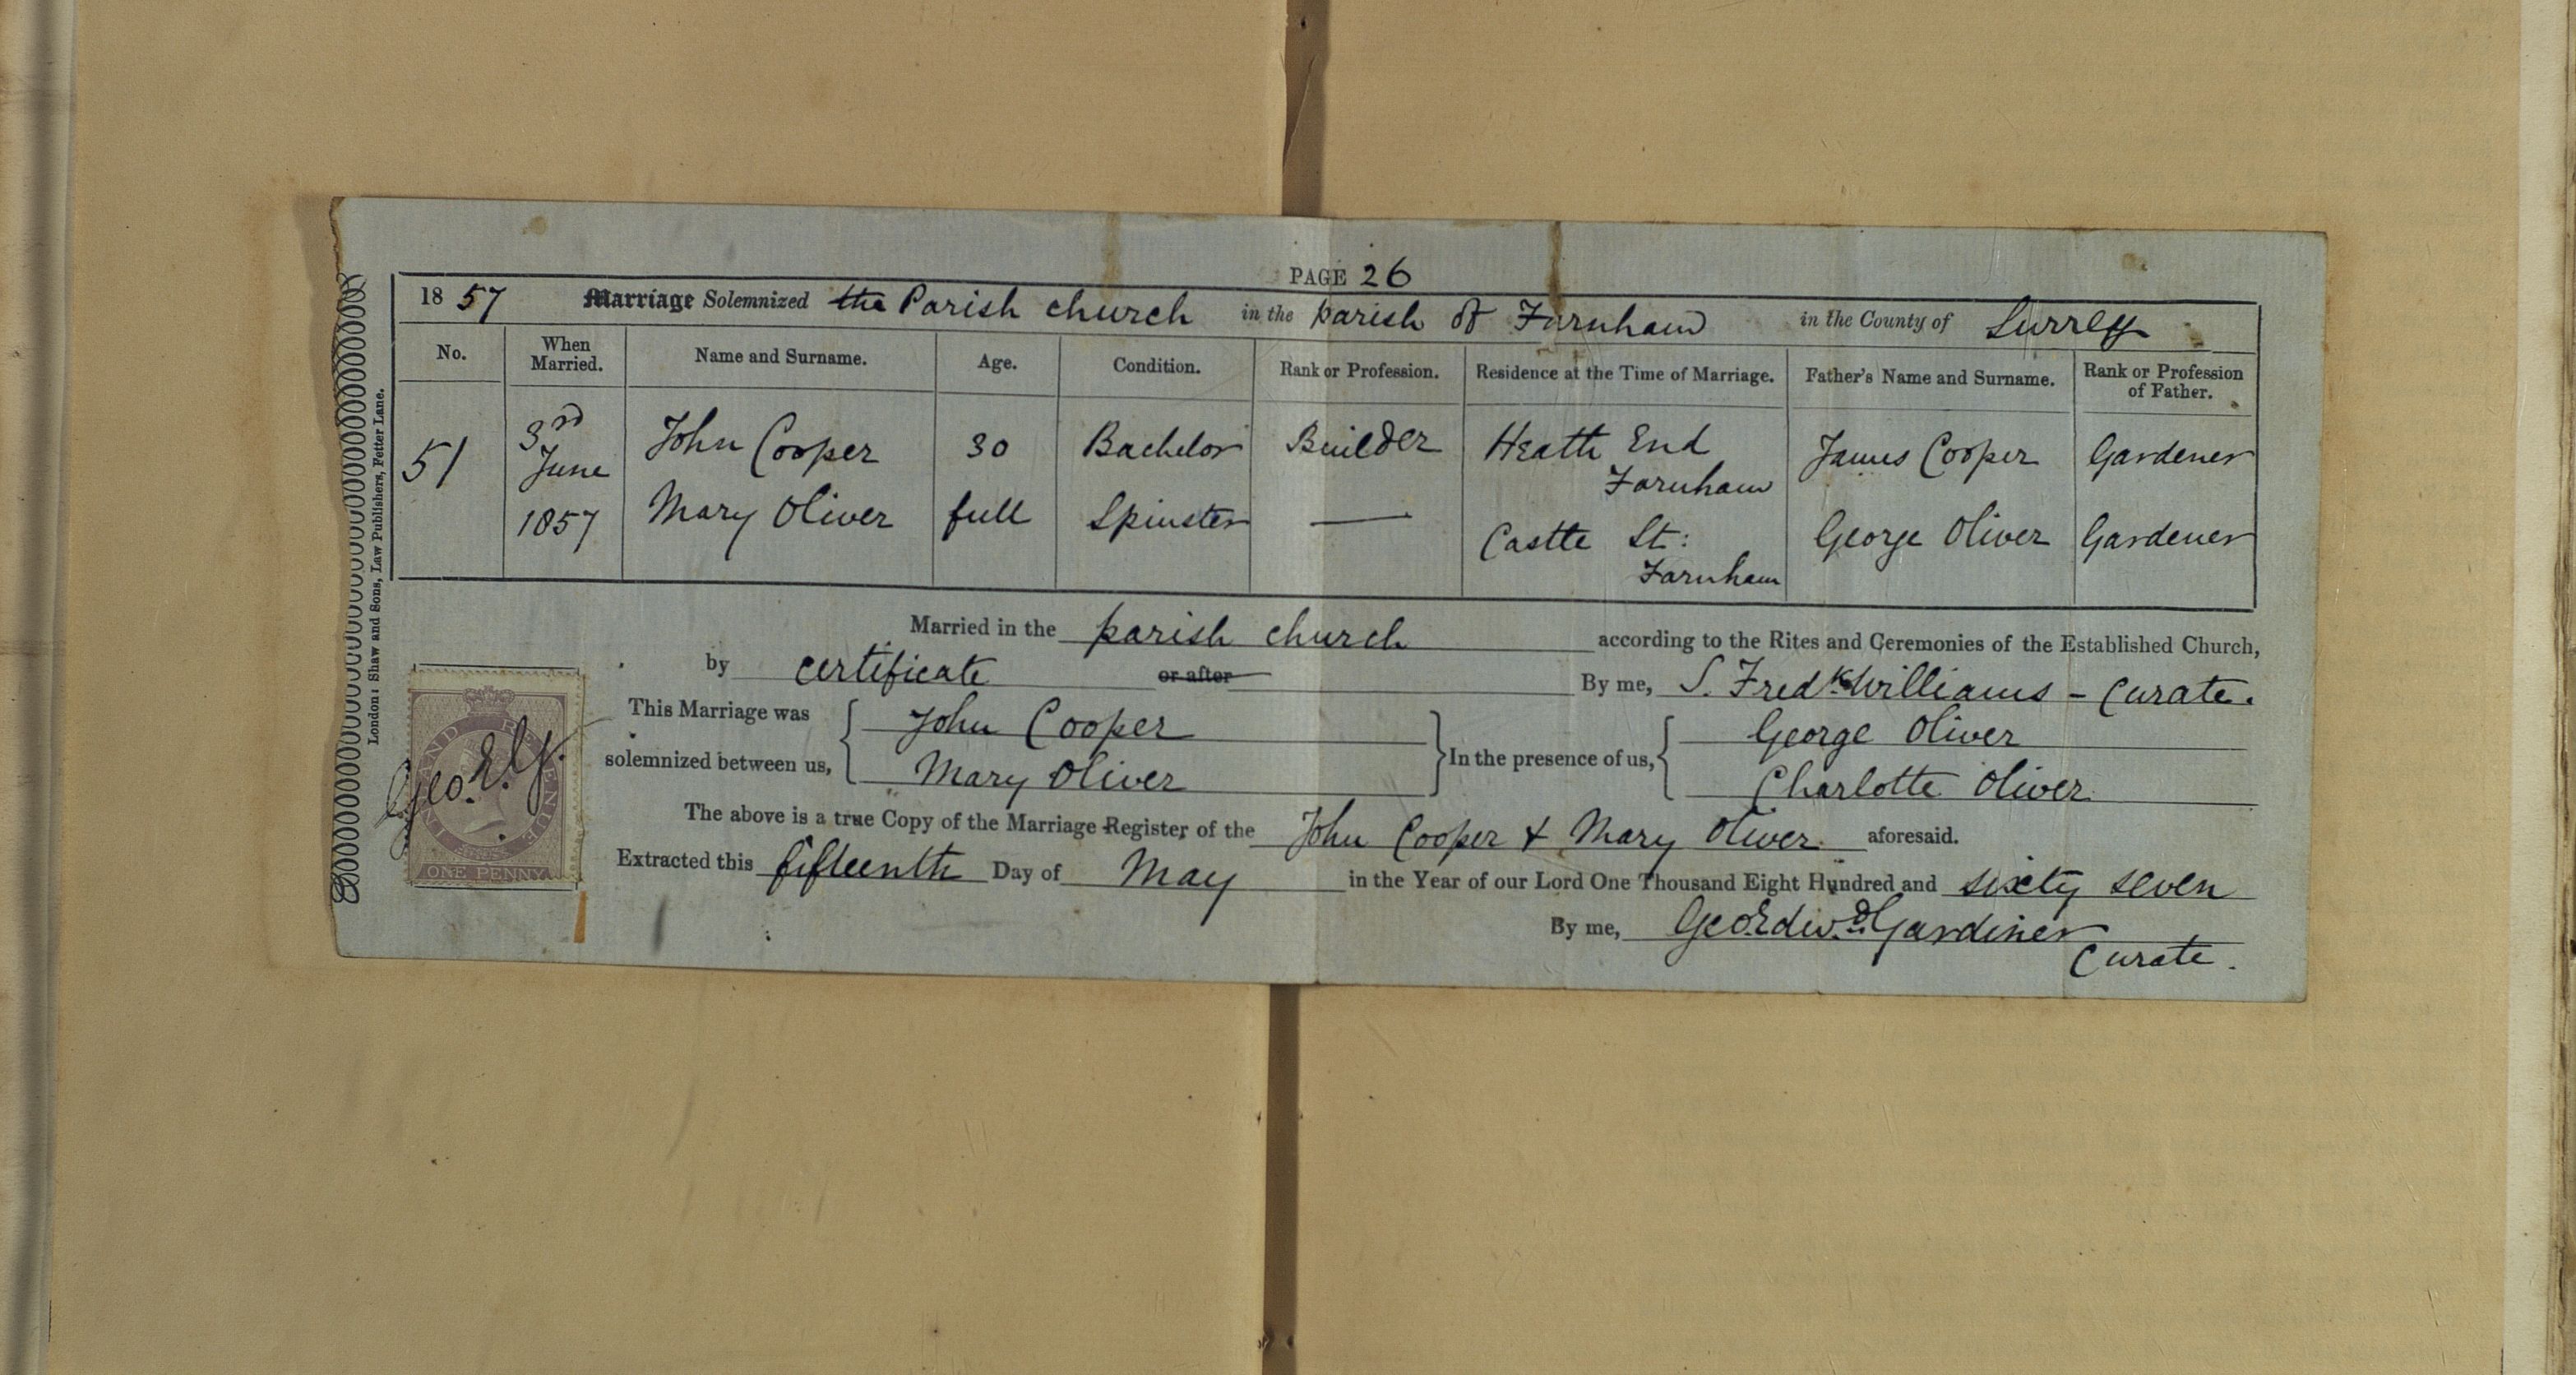 PAGE 26
1857 Marriage Solemnized the Parish church in the parish of Farnham in the County of Surrey
No. When Married. Name and Surname. Age. Condition. Rank or Profession. Residence at the Time of Marriage. Father's Name and Surname. Rank or Profession of Father.
51 3rd June 1857 John Cooper 30 Bachelor Builder Heath End Farnham James Cooper Gardener
Mary Oliver full Spinster — Castle St: Farnham George Oliver Gardener
Married in the parish church according to the Rites and Ceremonies of the Established Church,
by certificate or after By me, S. Fredk Williams - Curate.
This Marriage was solemnized between us, John Cooper Mary Oliver In the presence of us, George Oliver Charlotte Oliver
The above is a true Copy of the Marriage Register of the John Cooper & Mary Oliver aforesaid.
Extracted this fifteenth Day of May in the Year of our Lord One Thousand Eight Hundred and sixty seven
By me, Geo. Edwd. Gardiner
Curate.
London: Shaw and Sons, Law Publishers, Fetter Lane.
INLAND REVENUE
Geo. E. G.
ONE PENNY